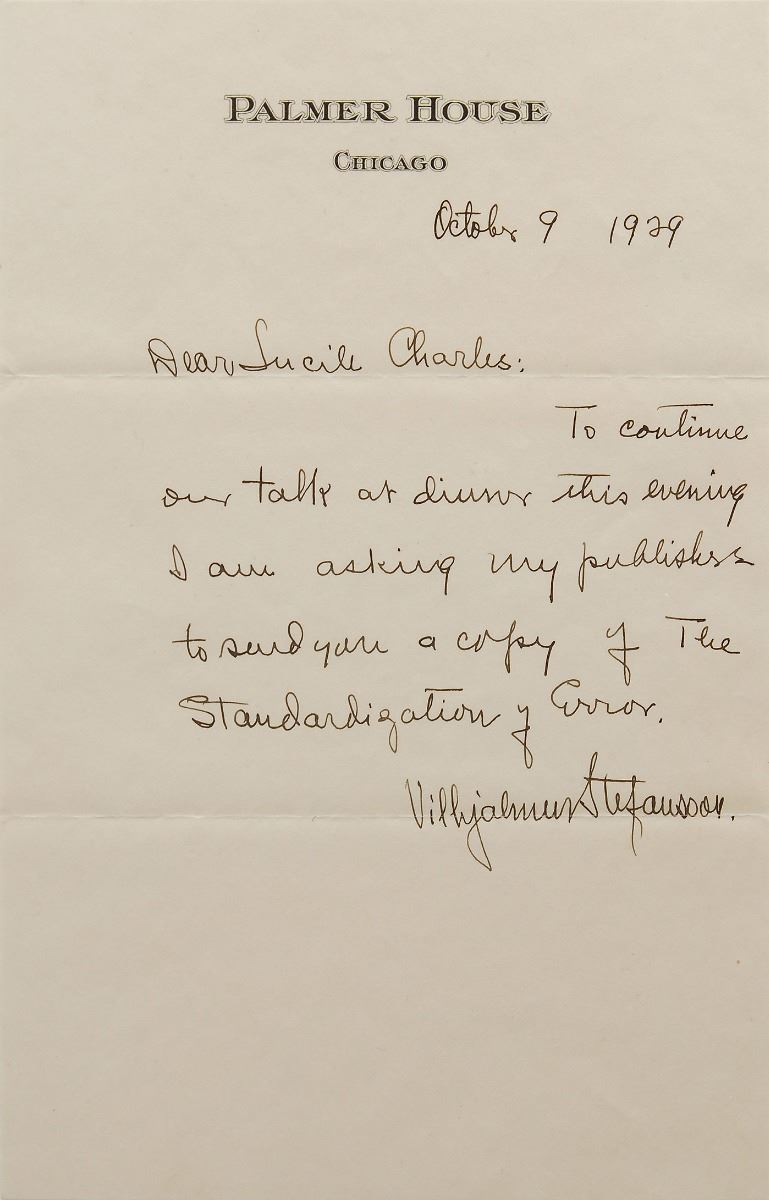 PALMER HOUSE
CHICAGO
October 9 1929
Dear Lucile Charles:
To continue
our talk at dinner this evening
I am asking my publishers
to send you a copy of The
Standardization of Error.
Vilhjalmur Stefansson.